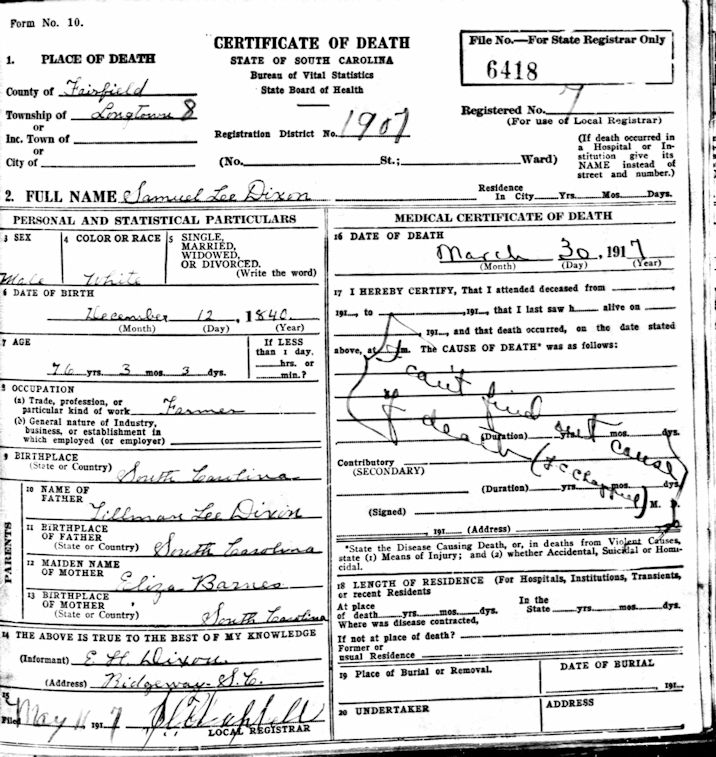 Form No. 10.
CERTIFICATE OF DEATH
STATE OF SOUTH CAROLINA
Bureau of Vital Statistics
State Board of Health
File No.—For State Registrar Only
6418
1. PLACE OF DEATH
County of Fairfield
Township of Longtown 8
or
Inc. Town of
or
City of
Registration District No. 1907
Registered No. 7
(For use of Local Registrar)
(No. St.; Ward)
(If death occurred in
a Hospital or In-
stitution give its
NAME instead of
street and number.)
2. FULL NAME Samuel Lee Dixon
Residence
In City Yrs. Mos. Days.
PERSONAL AND STATISTICAL PARTICULARS
3 SEX
Male
4 COLOR OR RACE
White
5 SINGLE,
MARRIED,
WIDOWED,
OR DIVORCED.
(Write the word)
6 DATE OF BIRTH
December 12, 1840
(Month) (Day) (Year)
7 AGE
76 yrs. 3 mos. 3 dys.
If LESS
than 1 day.
hrs. or
min.?
8 OCCUPATION
(a) Trade, profession, or
particular kind of work Farmer
(b) General nature of Industry,
business, or establishment in
which employed (or employer)
9 BIRTHPLACE
(State or Country) South Carolina
PARENTS
10 NAME OF
FATHER
Tillman Lee Dixon
11 BIRTHPLACE
OF FATHER
(State or Country) South Carolina
12 MAIDEN NAME
OF MOTHER
Eliza Barnes
13 BIRTHPLACE
OF MOTHER
(State or Country) South Carolina
14 THE ABOVE IS TRUE TO THE BEST OF MY KNOWLEDGE
(Informant) E. H. Dixon.
(Address) Ridgeway S.C.
15
Filed May 1917
LOCAL REGISTRAR
MEDICAL CERTIFICATE OF DEATH
16 DATE OF DEATH
March 30, 1917
(Month) (Day) (Year)
17 I HEREBY CERTIFY, That I attended deceased from
191 , to ,191 , that I last saw h alive on
, 191 , and that death occurred, on the date stated
above, at m. The CAUSE OF DEATH* was as follows:
I can't find
out cause
of death
(Duration) yrs. mos. dys.
Contributory
(SECONDARY)
(Duration) yrs. mos. dys.
(Signed) M. D.
, 191 (Address)
*State the Disease Causing Death, or, in deaths from Violent Causes,
state (1) Means of Injury; and (2) whether Accidental, Suicidal or Homi-
cidal.
18 LENGTH OF RESIDENCE (For Hospitals, Institutions, Transients,
or recent Residents
At place
of death yrs. mos. dys.
In the
State yrs. mos. dys.
Where was disease contracted,
If not at place of death?
Former or
usual Residence
19 Place of Burial or Removal.
DATE OF BURIAL
, 191
20 UNDERTAKER
ADDRESS